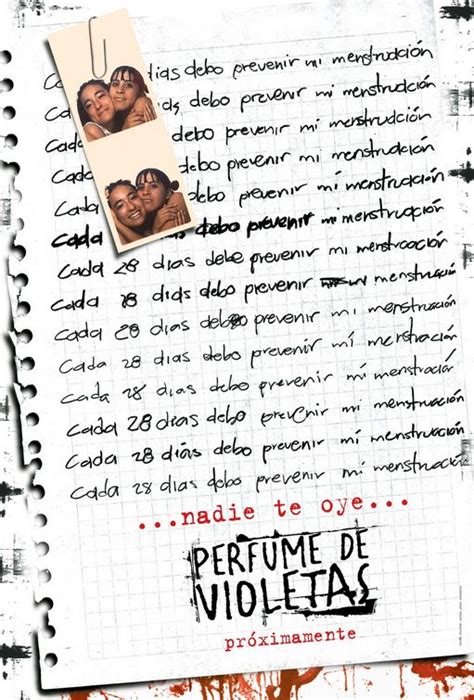 Cada días debo prevenir mi menstruación
Cada debo prevenir mi menstruación
Cada debo prevenir mi menstruación
Cada debo prevenir mi menstruación
Cada debo prevenir mi menstruación
Cada debo prevenir mi menstruación
Cada 28 días debe prevenir mi menstroación
Cada 28 días debo prevenir mi menstruación
Cada 28 días debo prevenir mi menstruación
Cada 28 días debo prevenir mi menstruación
Cada 28 días debo prevenir mi menstruación
Cada 28 días debo prevenir mi menstruación
Cada 28 días debo prevenir mi menstruación
Cada 28 días debo prevenir mi menstruación
...nadie te oye...
PERFUME DE
VIOLETAS
próximamente